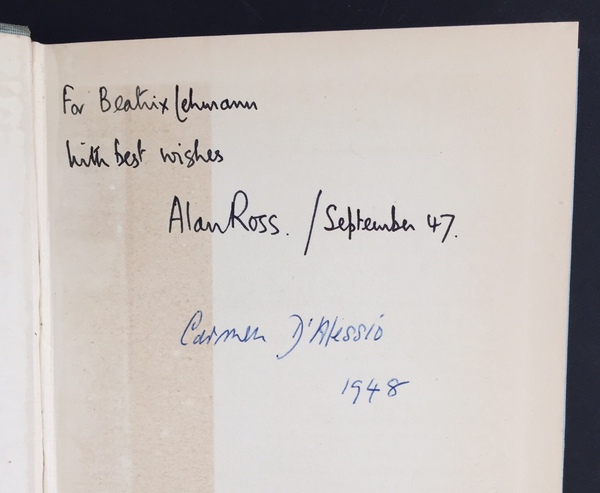 For Beatrix Lehmann
with best wishes
Alan Ross. / September 47.
Carmen D'Alessio
1948